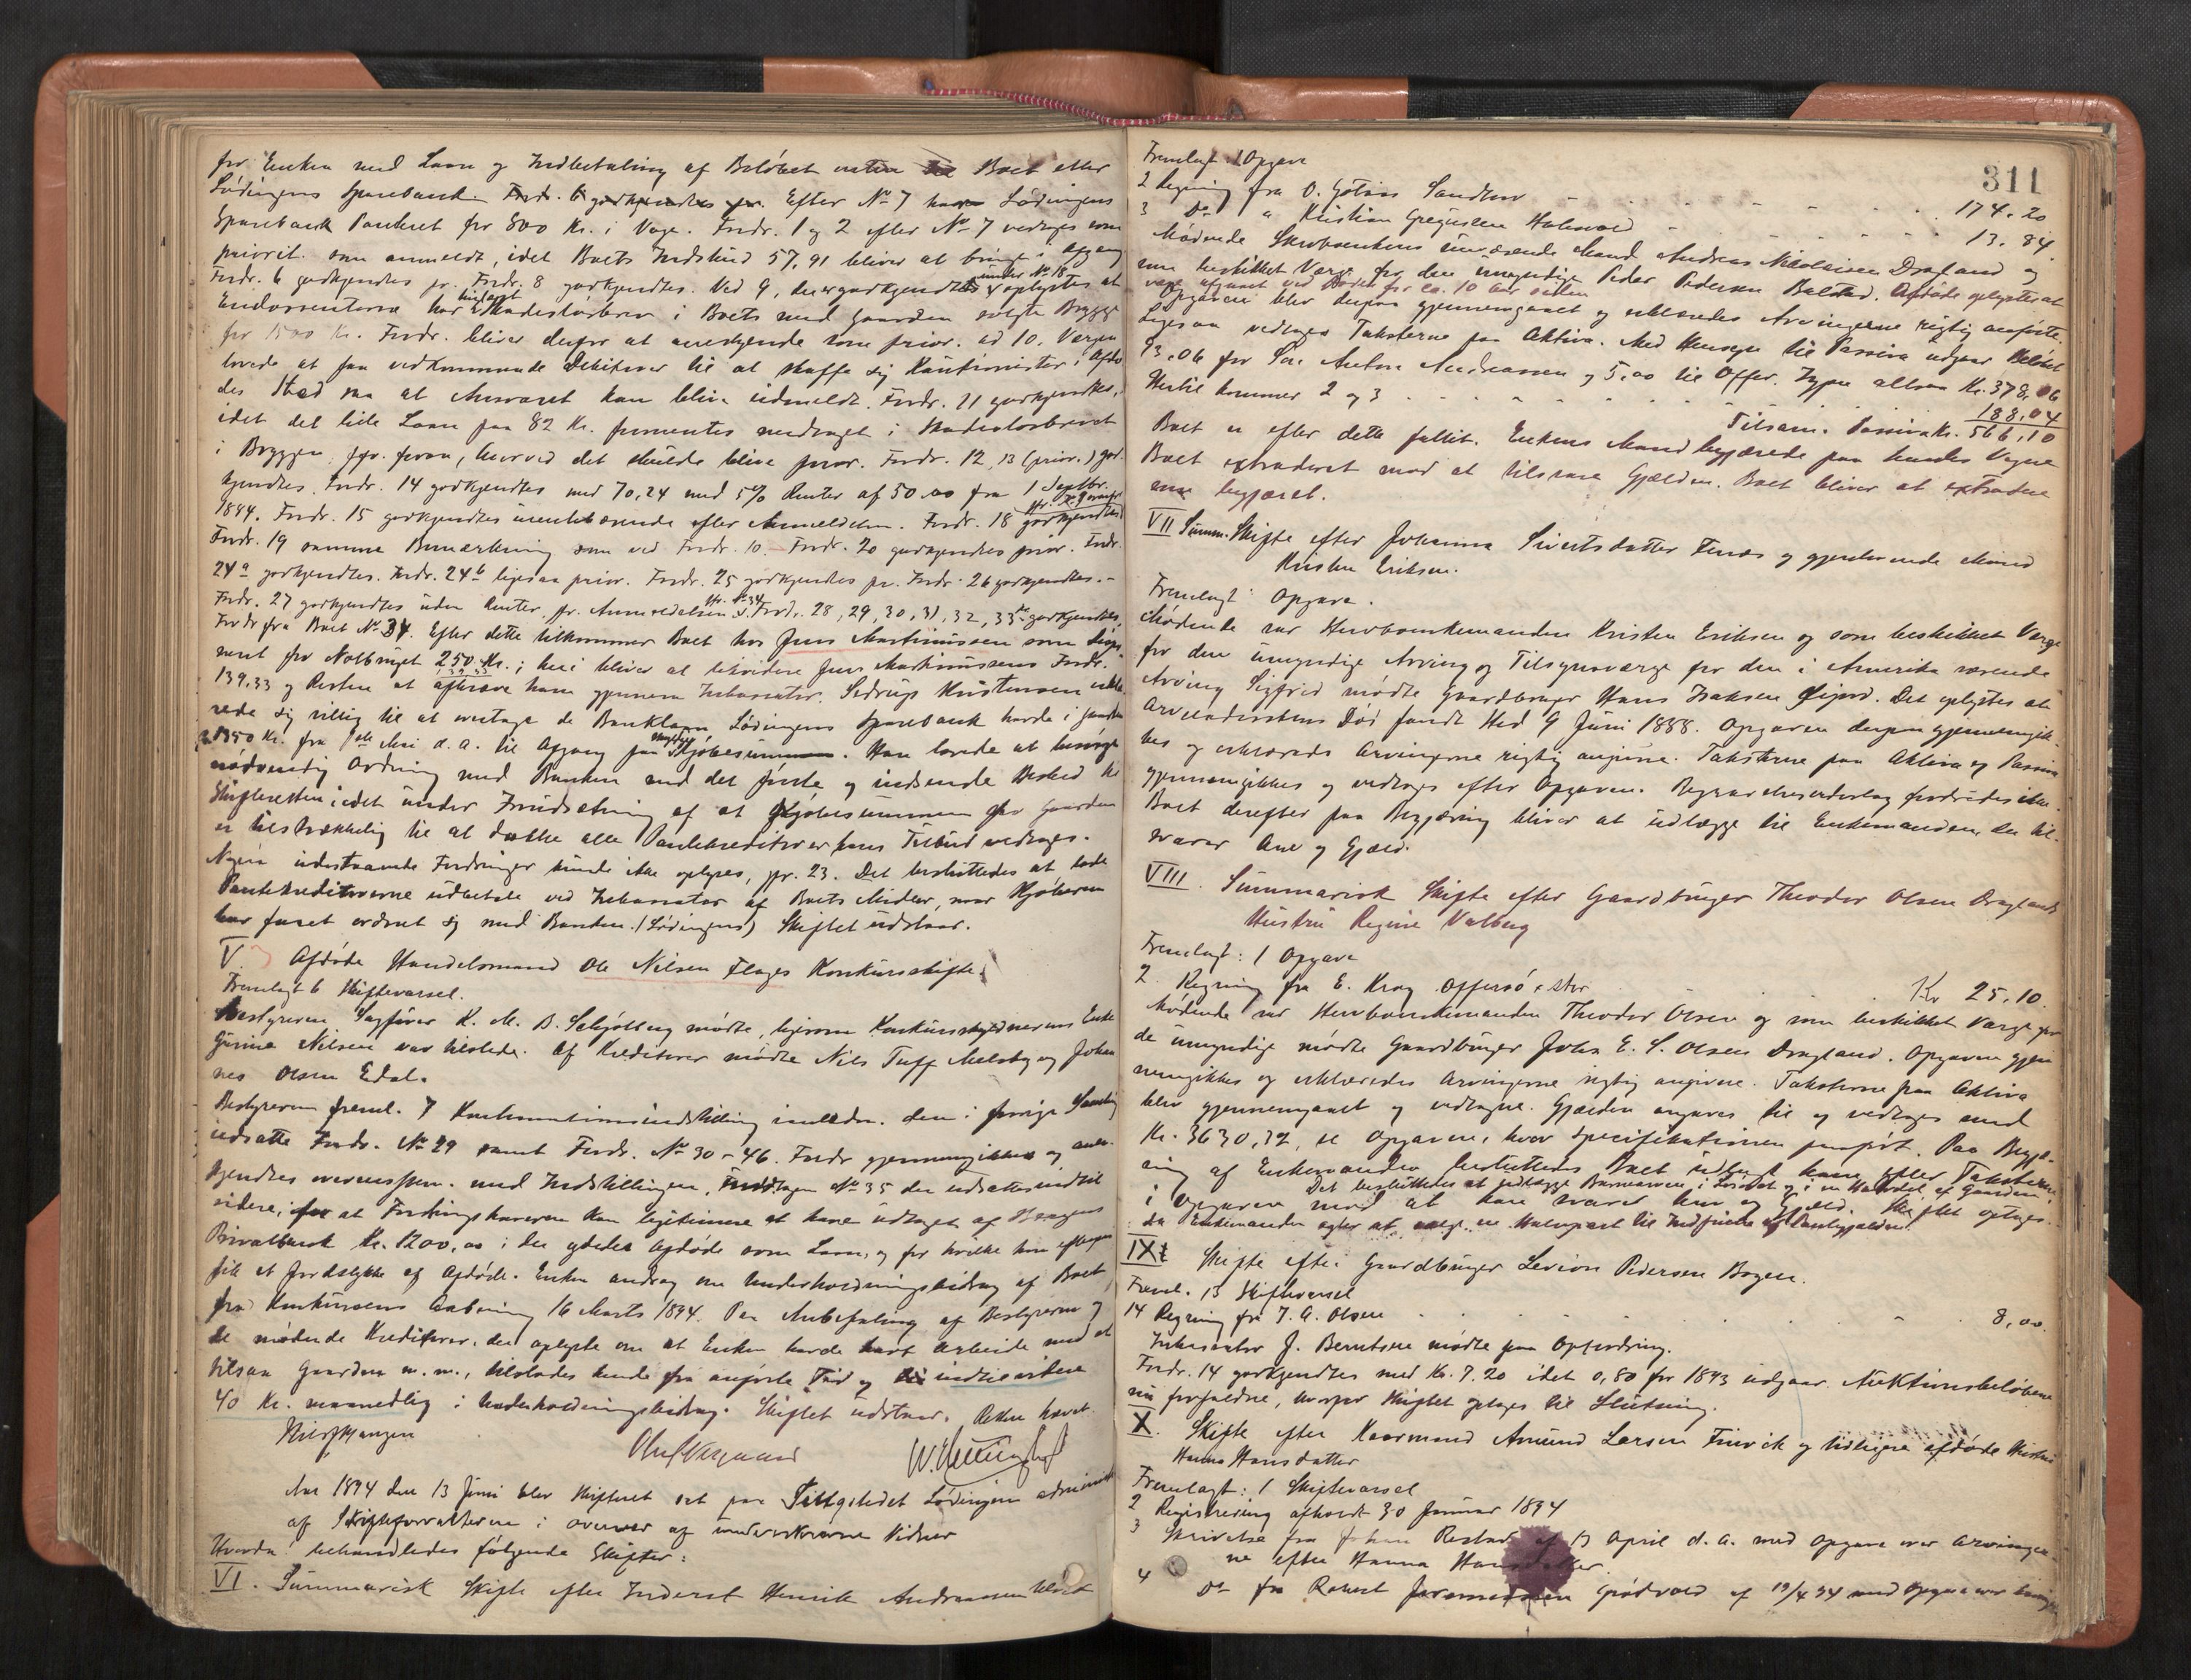 for Enken med Laan og Indbetaling af Beløbet enten til Boet eller
Lødingens Sparebank. Fordr. 6 godkjendtes pr. Efter No 7 har Lødingens
Sparebank Panteret for 800 Kr. i Vaage. Fordr. 1 og 2 efter No 7 vedtages som
priorit. som anmeldt, idet Boets Indskud 57,91 bliver at bringe i Afgang
Fordr. 6 godkjendtes pr. Fordr. 8 godkjendtes. Ved 9, der godkjendtes under No 18 oplystes at
Endossenterne har Skadesløsbrev i Boets med Gaarden solgte Brygge
for 1500 Kr. Fordr. bliver derfor at anerkjende som prior. ad 10. Vergen
lovede at faa vedkommende Debitorer til at skaffe sig Kautionister i Afdø
des Sted saa at Ansvaret kan blive udmeldt. Fordr. 11 godkjendtes,
idet det lille Laan paa 82 Kr. formentes medtaget i Skadesløsbrevet
i Bryggen, jfr. foran, hvorved det skulde blive prior. Fordr. 12, 13 (prior.) god
kjendtes. Fordr. 14 godkjendtes med 70,24 med 5% Renter af 50,00 fra 1 Septbr.
1884. Fordr. 15 godkjendtes efter Anmeldelsen. Fordr. 18 godkjendtes
Fordr. 19 samme Bemærkning som ved Fordr. 10. Fordr. 20 godkjendtes prior. Fordr.
24a godkjendtes. Fordr. 24b ligesaa prior. Fordr. 25 godkjendtes pr. Fordr. 26 godkjendtes.
Fordr. 27 godkjendtes uden Renter, pr. Anmeldelsen jfr. No 34. Fordr. 28, 29, 30, 31, 32, 33 godkjendtes,
Fordr fra Boet No 34. Efter dette tilkommer Boet hos Jens Martinussen som
ment for Notbruget 250 Kr.; heri bliver at likvidere Jens Martinussens Fordr.
139,33 og Resten at afkræve ham gjennem Inkassator. Sedrup Kristensen erklæ
rede sig villig til at overtage de Banklaan Lødingens Sparebank havde i Gaarden
1350 Kr. fra 1ste Mai d. a. til Afgang paa Kjøbesummen. Han lovede at besørge
nødvendig Ordning med Banken med det første og indsende Besked til
Skifteretten; idet under Forudsætning af at Kjøbesummen for Gaarden
er tilstrækkelig til at dække alle Pantekreditorer hans Tilbud vedtages.
Nogen udestaaende Fordringer kunde ikke oplyses, jfr. 23. Det besluttedes at lade
Pantekreditorerne udbetale ved Inkassator af Boets Midler, naar Kjøberen
har faaet ordnet sig med Banken (Lødingens) Skiftet udstaar.
V. Afdøde Handelsmand Ole Nilsen Flages Konkursskifte.
Fremlagt 6 Skiftevarsel.
Bestyreren Sagfører K. M. B. Schjølberg mødte, ligesom Konkursskyldnerens Enke
Gurine Nilsen var tilstede. Af Kreditorer mødte Nils Tuff Melsbø og Johan
nes Olsen Edal.
Bestyreren freml. 7 Konkurs indstilling den i forrige Samling
udsatte Fordr. No 29 samt Fordr. No 30-46. Fordr gjennemgikkes og aner-
kjendtes overensstem. med Indstillingen, undtagen No 35 der udsattes indtil
videre, for at Fordringshaveren kan legitimere at have udtaget af Bergens
Privatbank Kr. 1200,00 i der ydedes Afdøde som Laan, og for hvilke han
fik et Jordstykke af Afdøde. Enken androg om Underholdningsbidrag af Boet,
fra Konkursens Aabning 16 Marts 1894. Paa Anbefaling af Bestyreren og
de mødende Kreditorer, der oplyste om at Enken havde havt Arbeide med at
tilsaa Gaarden m. m., tilstodes hende fra anførte Tid og indtil videre
40 Kr. maanedlig i Underholdningsbidrag. Skiftet udstaar. Retten hævet.
Aar 1894 den 13 Juni blev Skifteret sat paa Tingstedet Lødingen administr
af Skifteforvalteren i Overvær af underskrevne Vidner
Hvorda behandledes følgende Skifter:
VI. Summarisk Skifte efter Inderst Henrik Andreassen
311
Fremlagt: 1 Opgave
2 Regning fra O. Sandtorv 174.20
3 Do " Kristian Gregusen Halsvold 13.84
Mødende Skrvboenkens nuværende Mand Andreas Nikolaisen Dragland og
som beskikket Verge for den umyndige Peder Pedersen Balstad. Afdøde oplystes at
være afgaaet ved Døden for ca. 10 Aar siden
Opgaven blev derpaa gjennemgaaet og erklæredes Arvingerne rigtig anførte.
Ligesaa vedtages Taksterne paa Aktiva. Med Hensyn til Passiva udgaar Beløbet
93,06 for Anton Andreassen og 5,00 til Offer. Igjen altsaa Kr. 378,06
Hertil kommer 2 og 3 188,04
Tilsam. Passiva Kr. 566,10
Boet er efter dette fallit. Enkens Mand begjærede paa hendes Vegne
Boet extraderet mod at tilsvare Gjælden. Boet bliver at extradere
som begjæret.
VII Summ. Skifte efter Johanna Sivertsdatter Fenæs og gjenlevende Mand
Kristen Eriksen.
Fremlagt: Opgave.
Mødende var Skrvboenkemanden Kristen Eriksen og som beskikket Verge
for den umyndige Arving og Tilsynsværge for den i Amerika værende
Arving Sigfrid mødte Gaardbruger Hans Isaksen Øijord. Det oplystes at
Arveladerskens Død fandt Sted 9 Juni 1888. Opgaven derpaa gjennemgik-
kes og erklæredes Arvingerne rigtig angivne. Taksterne paa Aktiva og Passiva
gjennemgikkes og vedtages efter Opgaven. Begravelsesudlæg fordredes ikke.
Boet derefter paa Begjæring bliver at udlægge til Enkemanden, der til-
svarer Arv og Gjæld.
VIII. Summarisk Skifte efter Gaardbruger Theodor Olsen Draglands
Hustru Regine Valberg
Fremlagt: 1 Opgave
2. Regning fra E. Krag Offersø, stor Kr 25,10.
Mødende var Skrvboenkemanden Theodor Olsen og som beskikket Verge for
de umyndige mødte Gaardbruger Johs E. S. Olsen Dragland. Opgaven gjen
nemgikkes og erklæredes Arvingerne rigtig angivne. Taksterne paa Aktiva
blev gjennemgaaet og vedtagne. Gjælden angaves til og vedtages med
Kr. 3630,32, se Opgaven, hvor Specifikationen paaført. Paa Begjæ-
ring af Enkemanden besluttedes Boet udlagt ham efter Taksterne
Det besluttedes at udlægge Barnearven i Løsøret og i en Halvdel af Gaarden,
i Opgaven mod at han svarer Arv og Gjæld. Skiftet optages.
da Enkemanden agter at sælge en Halvpart til Indfrielse af Pantegjælden.
IX Skifte efter Gaardbruger Levion Pedersen Bogen.
Freml. 13 Skiftevarsel
14 Regning fra J. A. Olsen 8,00.
Inkassator J. Berntsen mødte paa Opfordring.
Fordr. 14 godkjendtes med Kr. 7.20 idet 0,80 for 1893 udgaar. Auktionsbeløbene
nu forfaldne, hvorfor Skiftet optages til Slutning.
X. Skifte efter Kaarmand Amund Larsen Finvik og tidligere afdøde Hustru
Hanna Hansdatter
Fremlagt: 1 Skiftevarsel
2 Registrering afholdt 30 Januar 1894
3 Skrivelse fra Johan Restad af 13 April d. a. med Opgave over Arvingerne
ne efter Hanna Hansdatter.
4 Do fra Robert Jørmensen af 19/4 94 med Opgave over